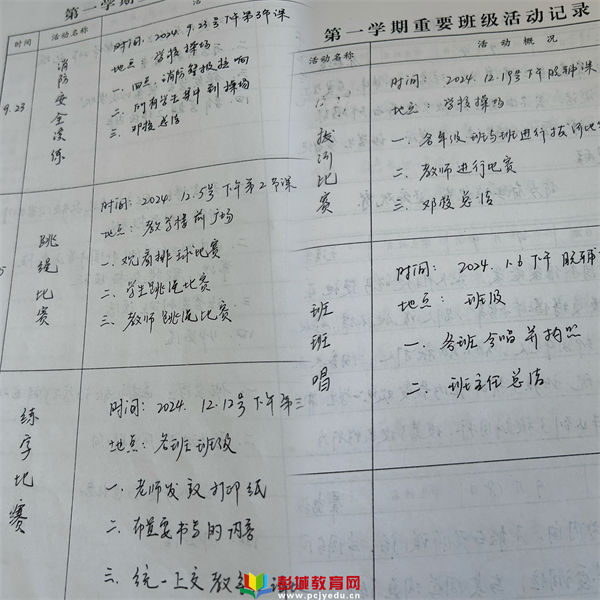 第一学期重
时间 活动名称 活
9.23
消防安全演练
时间：2024.9.23号下午第3节课
地点：学校操场
一、四点，消防警报拉响
二、所有学生集中到操场
三、邓校总结
跳绳比赛
时间：2024.12.5号下午第2节课
地点：教学楼前广场
一、观看排球比赛
二、学生跳绳比赛
三、教师跳绳比赛
练字比赛
时间：2024.12.12号下午第三
地点：各班班级
一、老师发放打印纸
二、布置要书写的内容
三、统一上交教
第一学期重要班级活动记录
活动名称 活动概况
拔河比赛
时间：2024.12.17号下午
地点：学校操场
一、各年级班与班进行拔河比
二、教师进行比赛
三、邓校总结
班班唱
时间：2024.1.6下午
地点：班级
一、各班合唱并拍照
二、班主任总结
彭城教育网
www.pcjyedu.cn